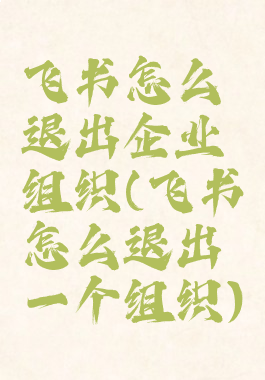 飞书怎么
退出企业
组织(飞书
怎么退出
一个组织)